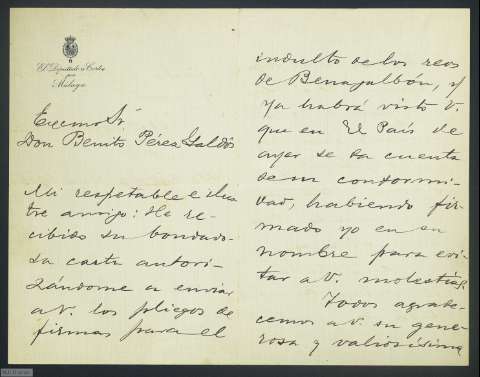 El Diputado á Cortes
por
Málaga
Excmo Sr
Don Benito Pérez Galdós
Mi respetable e ilus
tre amigo: He re-
cibido su bondado-
sa carta autori-
zándome a enviar
a V. los pliegos de
firmas para el
indulto de los reos
de Benagalbón, y
ya habrá visto V.
que en El País de
ayer se da cuenta
de su conformi-
dad, habiendo fir-
mado yo en su
nombre para evi-
tar a V. molestias.
Todos agrade-
cemos a V. su gene-
rosa y valiosísima